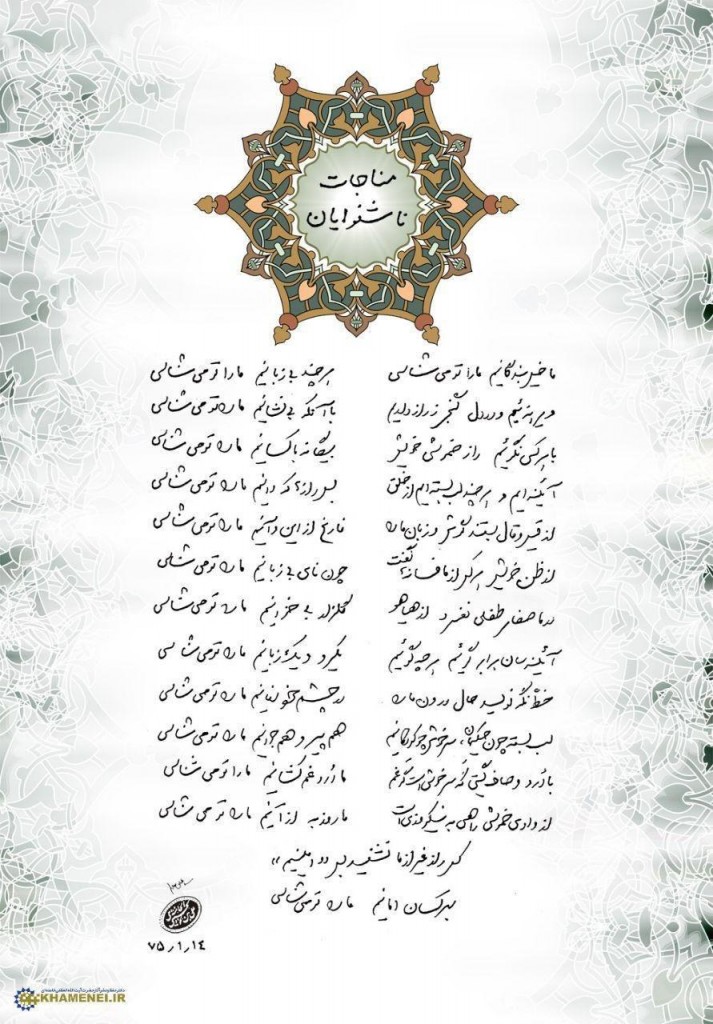 مناجات
ناشنوایان
ما خیل بندگانیم ما را تو می‌شناسی هر چند بی‌زبانیم ما را تو می‌شناسی
ویرانه‌ئیم و در دل گنجی ز راز داریم با آنکه بی‌نشانیم ما را تو می‌شناسی
با هر کسی نگوئیم راز خموشی خویش بیگانه با کسانیم ما را تو می‌شناسی
آئینه‌ایم و هر چند لب بسته‌ایم از خلق بس رازها که دانیم ما را تو می‌شناسی
از قیل و قال بستند گوش و زبان ما را فارغ از این و آنیم ما را تو می‌شناسی
از ظن خویش هر کس از ما فسانه‌ها گفت چون نای بی‌زبانیم ما را تو می‌شناسی
در ما صفای طفلی نفسرد از هیاهو گلزار بی‌خزانیم ما را تو می‌شناسی
آئینه‌سان برابر گوئیم هر چه گوئیم یکرو و یک‌زبانیم ما را تو می‌شناسی
خط نگه نویسد حال درون ما را در چشم خود نهانیم ما را تو می‌شناسی
لب بسته چون حکیمان، سرخوش چو کودکانیم هم پیر و هم جوانیم ما را تو می‌شناسی
با دُرد و صاف گیتی گه سرخوش است گه غم ما دُرد غم کشانیم ما را تو می‌شناسی
از وادی خموشی راهی به نیکروزی است ما روز به از آنیم ما را تو می‌شناسی
کس راز غیر از ما نشنید بس «امینیم»
بهر کسان امانیم ما را تو می‌شناسی
۷۵/۱/۱۴
KHAMENEI.IR